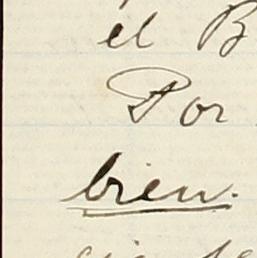 el B
Por
bien.